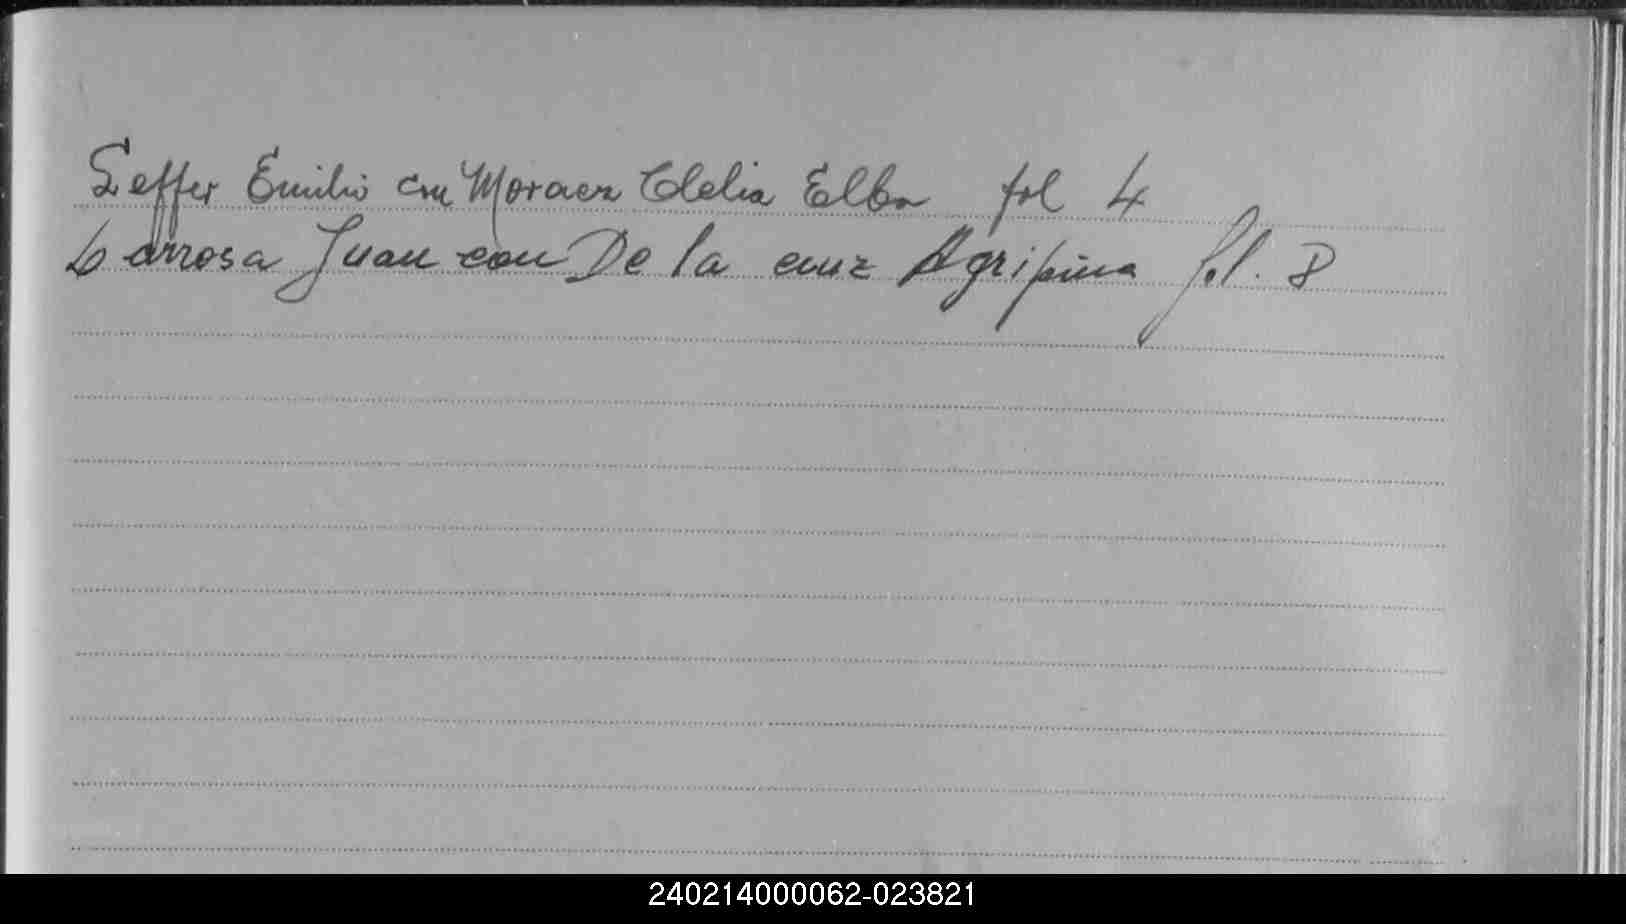 Leffer Emilio con Moraez Clelia Elba fol 4
Larrosa Juan con De la cruz Agripina fol. 8
240214000062-023821